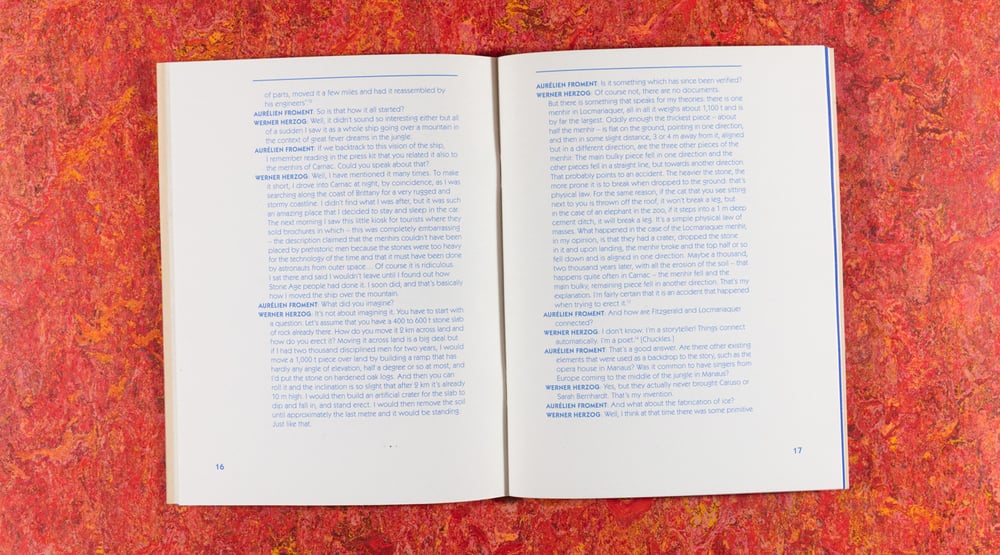 of parts, moved it a few miles and had it reassembled by
his engineers'.¹³
AURÉLIEN FROMENT: So is that how it all started?
WERNER HERZOG: Well, it didn't sound so interesting either but all
of a sudden I saw it as a whole ship going over a mountain in
the context of great fever dreams in the jungle.
AURÉLIEN FROMENT: If we backtrack to this vision of the ship,
I remember reading in the press kit that you related it also to
the menhirs of Carnac. Could you speak about that?
WERNER HERZOG: Well, I have mentioned it many times. To make
it short, I drove into Carnac at night, by coincidence, as I was
searching along the coast of Brittany for a very rugged and
stormy coastline. I didn't find what I was after, but it was such
an amazing place that I decided to stay and sleep in the car.
The next morning I saw this little kiosk for tourists where they
sold brochures in which – this was completely embarrassing
– the description claimed that the menhirs couldn't have been
placed by prehistoric men because the stones were too heavy
for the technology of the time and that it must have been done
by astronauts from outer space… Of course it is ridiculous.
I sat there and said I wouldn't leave until I found out how
Stone Age people had done it. I soon did, and that's basically
how I moved the ship over the mountain.
AURÉLIEN FROMENT: What did you imagine?
WERNER HERZOG: It's not about imagining it. You have to start with
a question. Let's assume that you have a 400 to 600 t stone slab
of rock already there. How do you move it 2 km across land and
how do you erect it? Moving it across land is a big deal but
if I had two thousand disciplined men for two years, I would
move a 1,000 t piece over land by building a ramp that has
hardly any angle of elevation, half a degree or so at most, and
I'd put the stone on hardened oak logs. And then you can
roll it and the inclination is so slight that after 2 km it's already
10 m high. I would then build an artificial crater for the slab to
dip and fall in, and stand erect. I would then remove the soil
until approximately the last metre and it would be standing.
Just like that.
16
AURÉLIEN FROMENT: Is it something which has since been verified?
WERNER HERZOG: Of course not, there are no documents.
But there is something that speaks for my theories: there is one
menhir in Locmariaquer, all in all it weighs about 1,100 t and is
by far the largest. Oddly enough the thickest piece – about
half the menhir – is flat on the ground, pointing in one direction,
and then in some slight distance, 3 or 4 m away from it, aligned
but in a different direction, are the three other pieces of the
menhir. The main bulky piece fell in one direction and the
other pieces fell in a straight line, but towards another direction.
That probably points to an accident. The heavier the stone, the
more prone it is to break when dropped to the ground: that's
physical law. For the same reason, if the cat that you see sitting
next to you is thrown off the roof, it won't break a leg, but
in the case of an elephant in the zoo, if it steps into a 1 m deep
cement ditch, it will break a leg. It's a simple physical law of
masses. What happened in the case of the Locmariaquer menhir,
in my opinion, is that they had a crater, dropped the stone
in it and upon landing, the menhir broke and the top half or so
fell down and is aligned in one direction. Maybe a thousand,
two thousand years later, with all the erosion of the soil – that
happens quite often in Carnac – the menhir fell and the
main bulky, remaining piece fell in another direction. That's my
explanation. I'm fairly certain that it is an accident that happened
when trying to erect it.
AURÉLIEN FROMENT: And how are Fitzgerald and Locmariaquer
connected?
WERNER HERZOG: I don't know. I'm a storyteller! Things connect
automatically. I'm a poet. [Chuckles.]
AURÉLIEN FROMENT: That's a good answer. Are there other existing
elements that were used as a backdrop to the story, such as the
opera house in Manaus? Was it common to have singers from
Europe coming to the middle of the jungle in Manaus?
WERNER HERZOG: Yes, but they actually never brought Caruso or
Sarah Bernhardt. That's my invention.
AURÉLIEN FROMENT: And what about the fabrication of ice?
WERNER HERZOG: Well, I think at that time there was some primitive
17